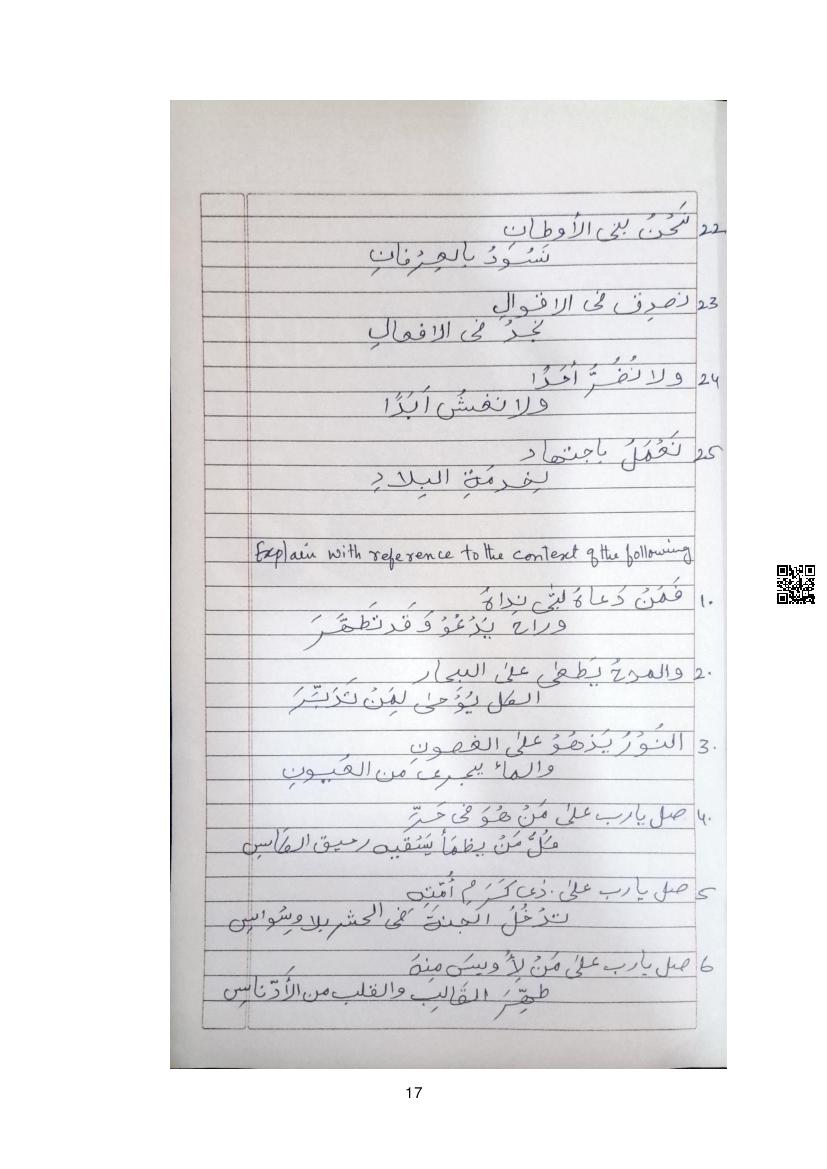 22 نَحْنُ بنى الأوطان
نَسُوْدُ بالعِرْفانِ
23 نصدِق فى الاقوالِ
نَجِدُّ فى الافعالِ
24 ولا نُضُرُّ أحَدًا
ولا نغشُ اَبَدًا
25 نَعْمَلُ باجتهاد
لِخِدمَةِ البِلادِ
Explain with reference to the context of the following
1. فَمَنْ دَعاهُ لبّى نِداهُ
وراح يَدْعُوْ وَقَد تَطَهَّرَ
2. والموجُ يَطغى على البحار
الكل يُوْحىٰ لِمَنْ تَدَبَّرَ
3. النُوْرُ يَزهُوْ علىَ الغصونِ
والماءُ يجرى من العُيونِ
4. صل يارب علىٰ مَنْ هُوَ فى حَرِّ
كُلُّ مَنْ يظمأ يَسْقيه رحيق الكاسِ
5 صل يارب علىٰ ذى كَرَمٍ أُمّتِه
تدْخُلُ الجنةَ فى الحشر بلا وِسْواسِ
6 صل يارب علىٰ مَنْ لأويسَ مِنهُ
طهِّرَ القَالِبَ والقلب من الأَدْناسِ
17